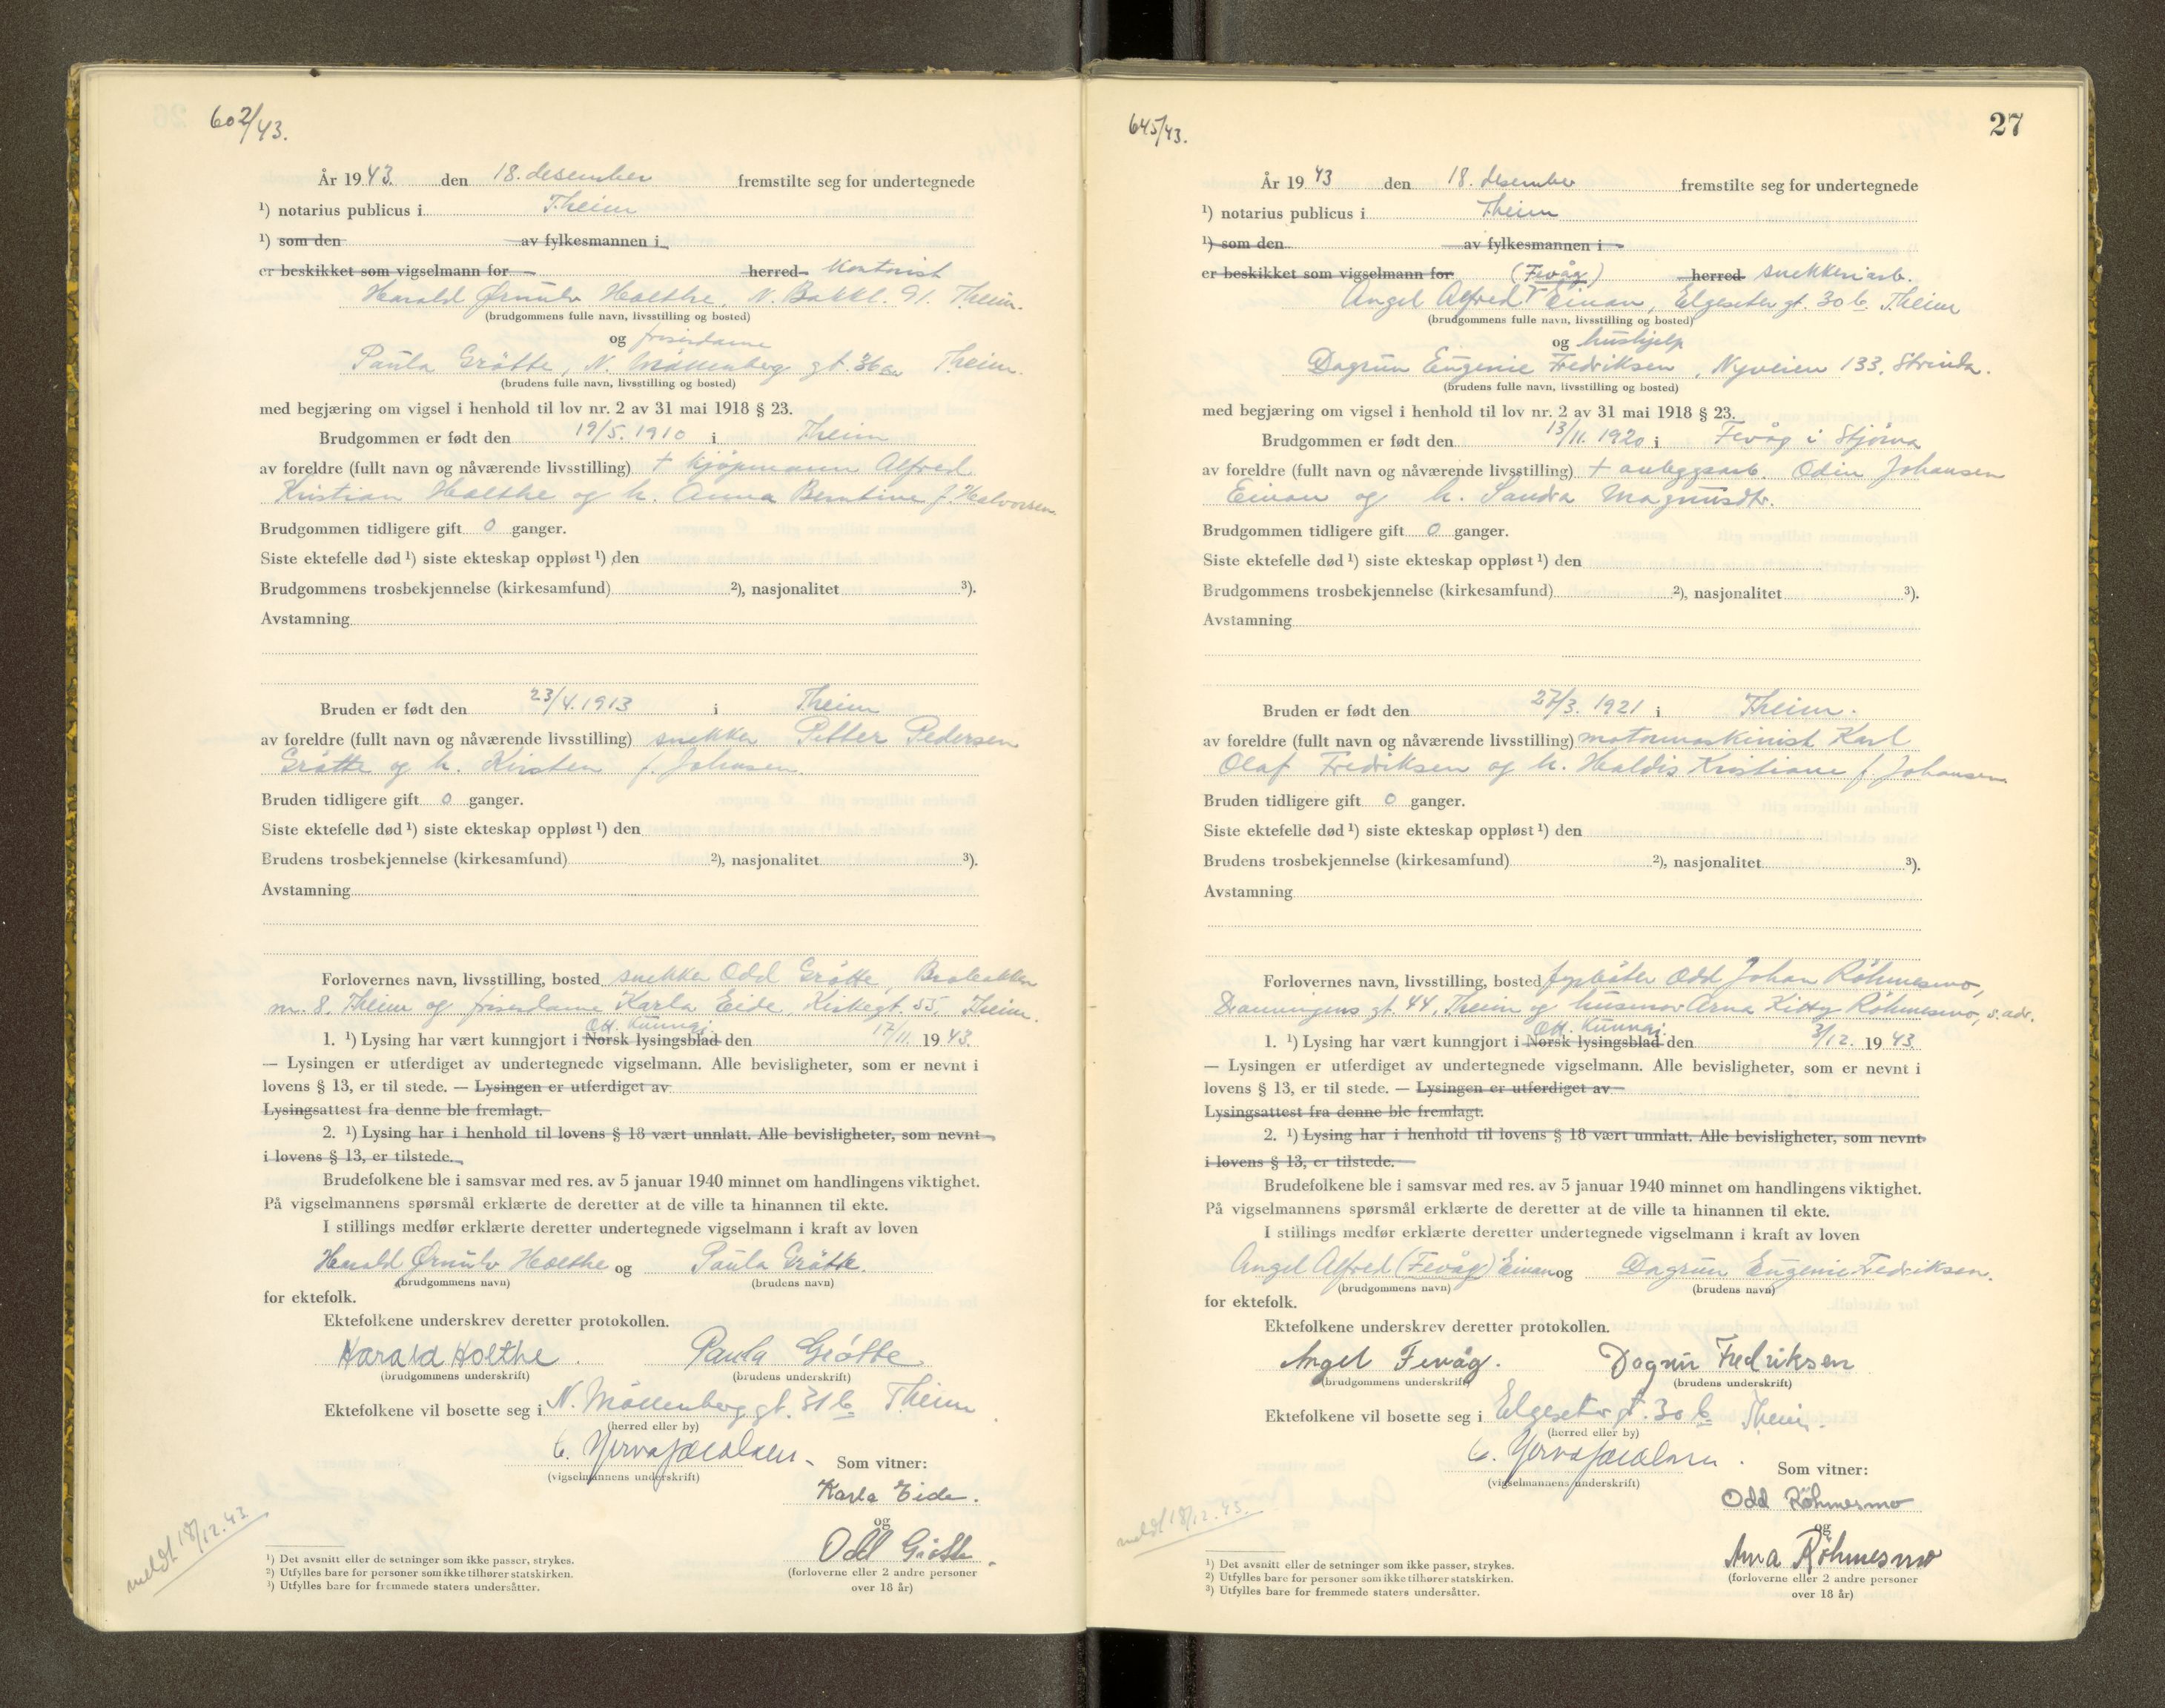 602/43.
År 1943. den 18. desember fremstilte seg for undertegnede
¹) notarius publicus i Theim
¹) som den av fylkesmannen i
er beskikket som vigselmann for herred kontorist
Harald Ørnulv Holthe, N. Bakkl. 91. Theim.
(brudgommens fulle navn, livsstilling og bosted)
og frisørdame
Paula Gråtte, N. Möllenberg gt. 36a Theim.
(brudens fulle navn, livsstilling og bosted)
med begjæring om vigsel i henhold til lov nr. 2 av 31 mai 1918 § 23.
Brudgommen er født den 19/5. 1910 i Theim
av foreldre (fullt navn og nåværende livsstilling) + kjöpmann Alfred
Kristian Holthe og h. Anna Berntine f. Halvorsen.
Brudgommen tidligere gift 0 ganger.
Siste ektefelle død ¹) siste ekteskap oppløst ¹) den
Brudgommens trosbekjennelse (kirkesamfund) ²), nasjonalitet ³).
Avstamning
Bruden er født den 23/4. 1913 i Theim
av foreldre (fullt navn og nåværende livsstilling) snekker Petter Pedersen
Gråtte og h. Kirsten f. Johnsen.
Bruden tidligere gift 0 ganger.
Siste ektefelle død ¹) siste ekteskap oppløst ¹) den
Brudens trosbekjennelse (kirkesamfund) ²), nasjonalitet ³).
Avstamning
Forlovernes navn, livsstilling, bosted snekker Odd Gråtte,
nr. 8. Theim og frisørdame Karla Eide, Kirkegt. 55, Theim.
Off. kunngj.
1. ¹) Lysing har vært kunngjort i Norsk lysingsblad den 17/11. 1943.
— Lysingen er utferdiget av undertegnede vigselmann. Alle bevisligheter, som er nevnt i
lovens § 13, er til stede. — Lysingen er utferdiget av
Lysingsattest fra denne ble fremlagt.
2. ¹) Lysing har i henhold til lovens § 18 vært unnlatt. Alle bevisligheter, som nevnt
i lovens § 13, er tilstede.
Brudefolkene ble i samsvar med res. av 5 januar 1940 minnet om handlingens viktighet.
På vigselmannens spørsmål erklærte de deretter at de ville ta hinannen til ekte.
I stillings medfør erklærte deretter undertegnede vigselmann i kraft av loven
Harald Ørnulv Holthe og Paula Gråtte.
(brudgommens navn) (brudens navn)
for ektefolk.
Ektefolkene underskrev deretter protokollen.
Harald Holthe. Paula Gråtte.
(brudgommens underskrift) (brudens underskrift)
Ektefolkene vil bosette seg i N. Möllenberg gt. 31b Theim
(herred eller by)
Som vitner:
(vigselmannens underskrift)
Karla Eide.
og
Odd Gråtte.
(forloverne eller 2 andre personer
over 18 år)
meldt 18/12.43.
¹) Det avsnitt eller de setninger som ikke passer, strykes.
²) Utfylles bare for personer som ikke tilhører statskirken.
³) Utfylles bare for fremmede staters undersåtter.
27
645/43.
År 1943 den 18. desember fremstilte seg for undertegnede
¹) notarius publicus i Theim
¹) som den av fylkesmannen i
er beskikket som vigselmann for (Fevåg) herred snekkeriarb.
Angel Alfred Einan, Elgeseter gt. 30b. Theim
(brudgommens fulle navn, livsstilling og bosted)
og hushjelp
Dagrun Eugenie Fredriksen, Nyveien 133, Strinda.
(brudens fulle navn, livsstilling og bosted)
med begjæring om vigsel i henhold til lov nr. 2 av 31 mai 1918 § 23.
Brudgommen er født den 13/11. 1920 i Fevåg i Stjørna
av foreldre (fullt navn og nåværende livsstilling) + anleggsarb. Odin Johansen
Einan og h. Sandra Magnusdtr.
Brudgommen tidligere gift 0 ganger.
Siste ektefelle død ¹) siste ekteskap oppløst ¹) den
Brudgommens trosbekjennelse (kirkesamfund) ²), nasjonalitet ³).
Avstamning
Bruden er født den 27/3. 1921 i Theim.
av foreldre (fullt navn og nåværende livsstilling) motormaskinist Karl
Olaf Fredriksen og h. Haldis Kristiane f. Johansen
Bruden tidligere gift 0 ganger.
Siste ektefelle død ¹) siste ekteskap oppløst ¹) den
Brudens trosbekjennelse (kirkesamfund) ²), nasjonalitet ³).
Avstamning
Forlovernes navn, livsstilling, bosted fyrböter Odd Johan Röhmesmo,
gt. 44, Theim og husmor Arna Kitty Röhmesmo, s. adr.
Off. kunngj.
1. ¹) Lysing har vært kunngjort i Norsk lysingsblad den 3/12. 1943
— Lysingen er utferdiget av undertegnede vigselmann. Alle bevisligheter, som er nevnt i
lovens § 13, er til stede. — Lysingen er utferdiget av
Lysingsattest fra denne ble fremlagt.
2. ¹) Lysing har i henhold til lovens § 18 vært unnlatt. Alle bevisligheter, som nevnt
i lovens § 13, er tilstede.
Brudefolkene ble i samsvar med res. av 5 januar 1940 minnet om handlingens viktighet.
På vigselmannens spørsmål erklærte de deretter at de ville ta hinannen til ekte.
I stillings medfør erklærte deretter undertegnede vigselmann i kraft av loven
Angel Alfred (Fevåg) Einan og Dagrun Eugenie Fredriksen.
(brudgommens navn) (brudens navn)
for ektefolk.
Ektefolkene underskrev deretter protokollen.
Angel Fevåg. Dagrun Fredriksen
(brudgommens underskrift) (brudens underskrift)
Ektefolkene vil bosette seg i Elgeseter gt. 30b Theim.
(herred eller by)
Som vitner:
(vigselmannens underskrift)
Odd Röhmesmo
og
Arna Röhmesmo
(forloverne eller 2 andre personer
over 18 år)
meldt 18/12.43.
¹) Det avsnitt eller de setninger som ikke passer, strykes.
²) Utfylles bare for personer som ikke tilhører statskirken.
³) Utfylles bare for fremmede staters undersåtter.